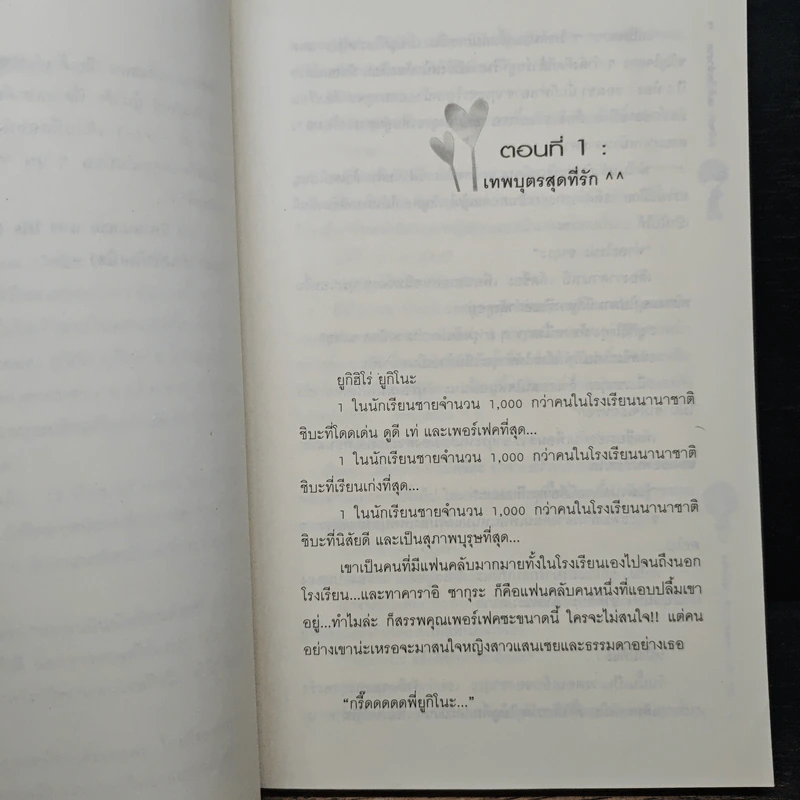 ตอนที่ 1 :
เทพบุตรสุดที่รัก ^^
ยูกิฮิโร่ ยูกิโนะ
1 ในนักเรียนชายจำนวน 1,000 กว่าคนในโรงเรียนนานาชาติ
ชิบะที่โดดเด่น ดูดี เท่ และเพอร์เฟคที่สุด...
1 ในนักเรียนชายจำนวน 1,000 กว่าคนในโรงเรียนนานาชาติ
ชิบะที่เรียนเก่งที่สุด...
1 ในนักเรียนชายจำนวน 1,000 กว่าคนในโรงเรียนนานาชาติ
ชิบะที่นิสัยดี และเป็นสุภาพบุรุษที่สุด...
เขาเป็นคนที่มีแฟนคลับมากมายทั้งในโรงเรียนเองไปจนถึงนอก
โรงเรียน...และทาคาราอิ ซากุระ ก็คือแฟนคลับคนหนึ่งที่แอบปลื้มเขา
อยู่...ทำไมล่ะ ก็สรรพคุณเพอร์เฟคซะขนาดนี้ ใครจะไม่สนใจ!! แต่คน
อย่างเขาน่ะเหรอจะมาสนใจหญิงสาวแสนเชยและธรรมดาอย่างเธอ
“กรี๊ดดดดดพี่ยูกิโนะ...”